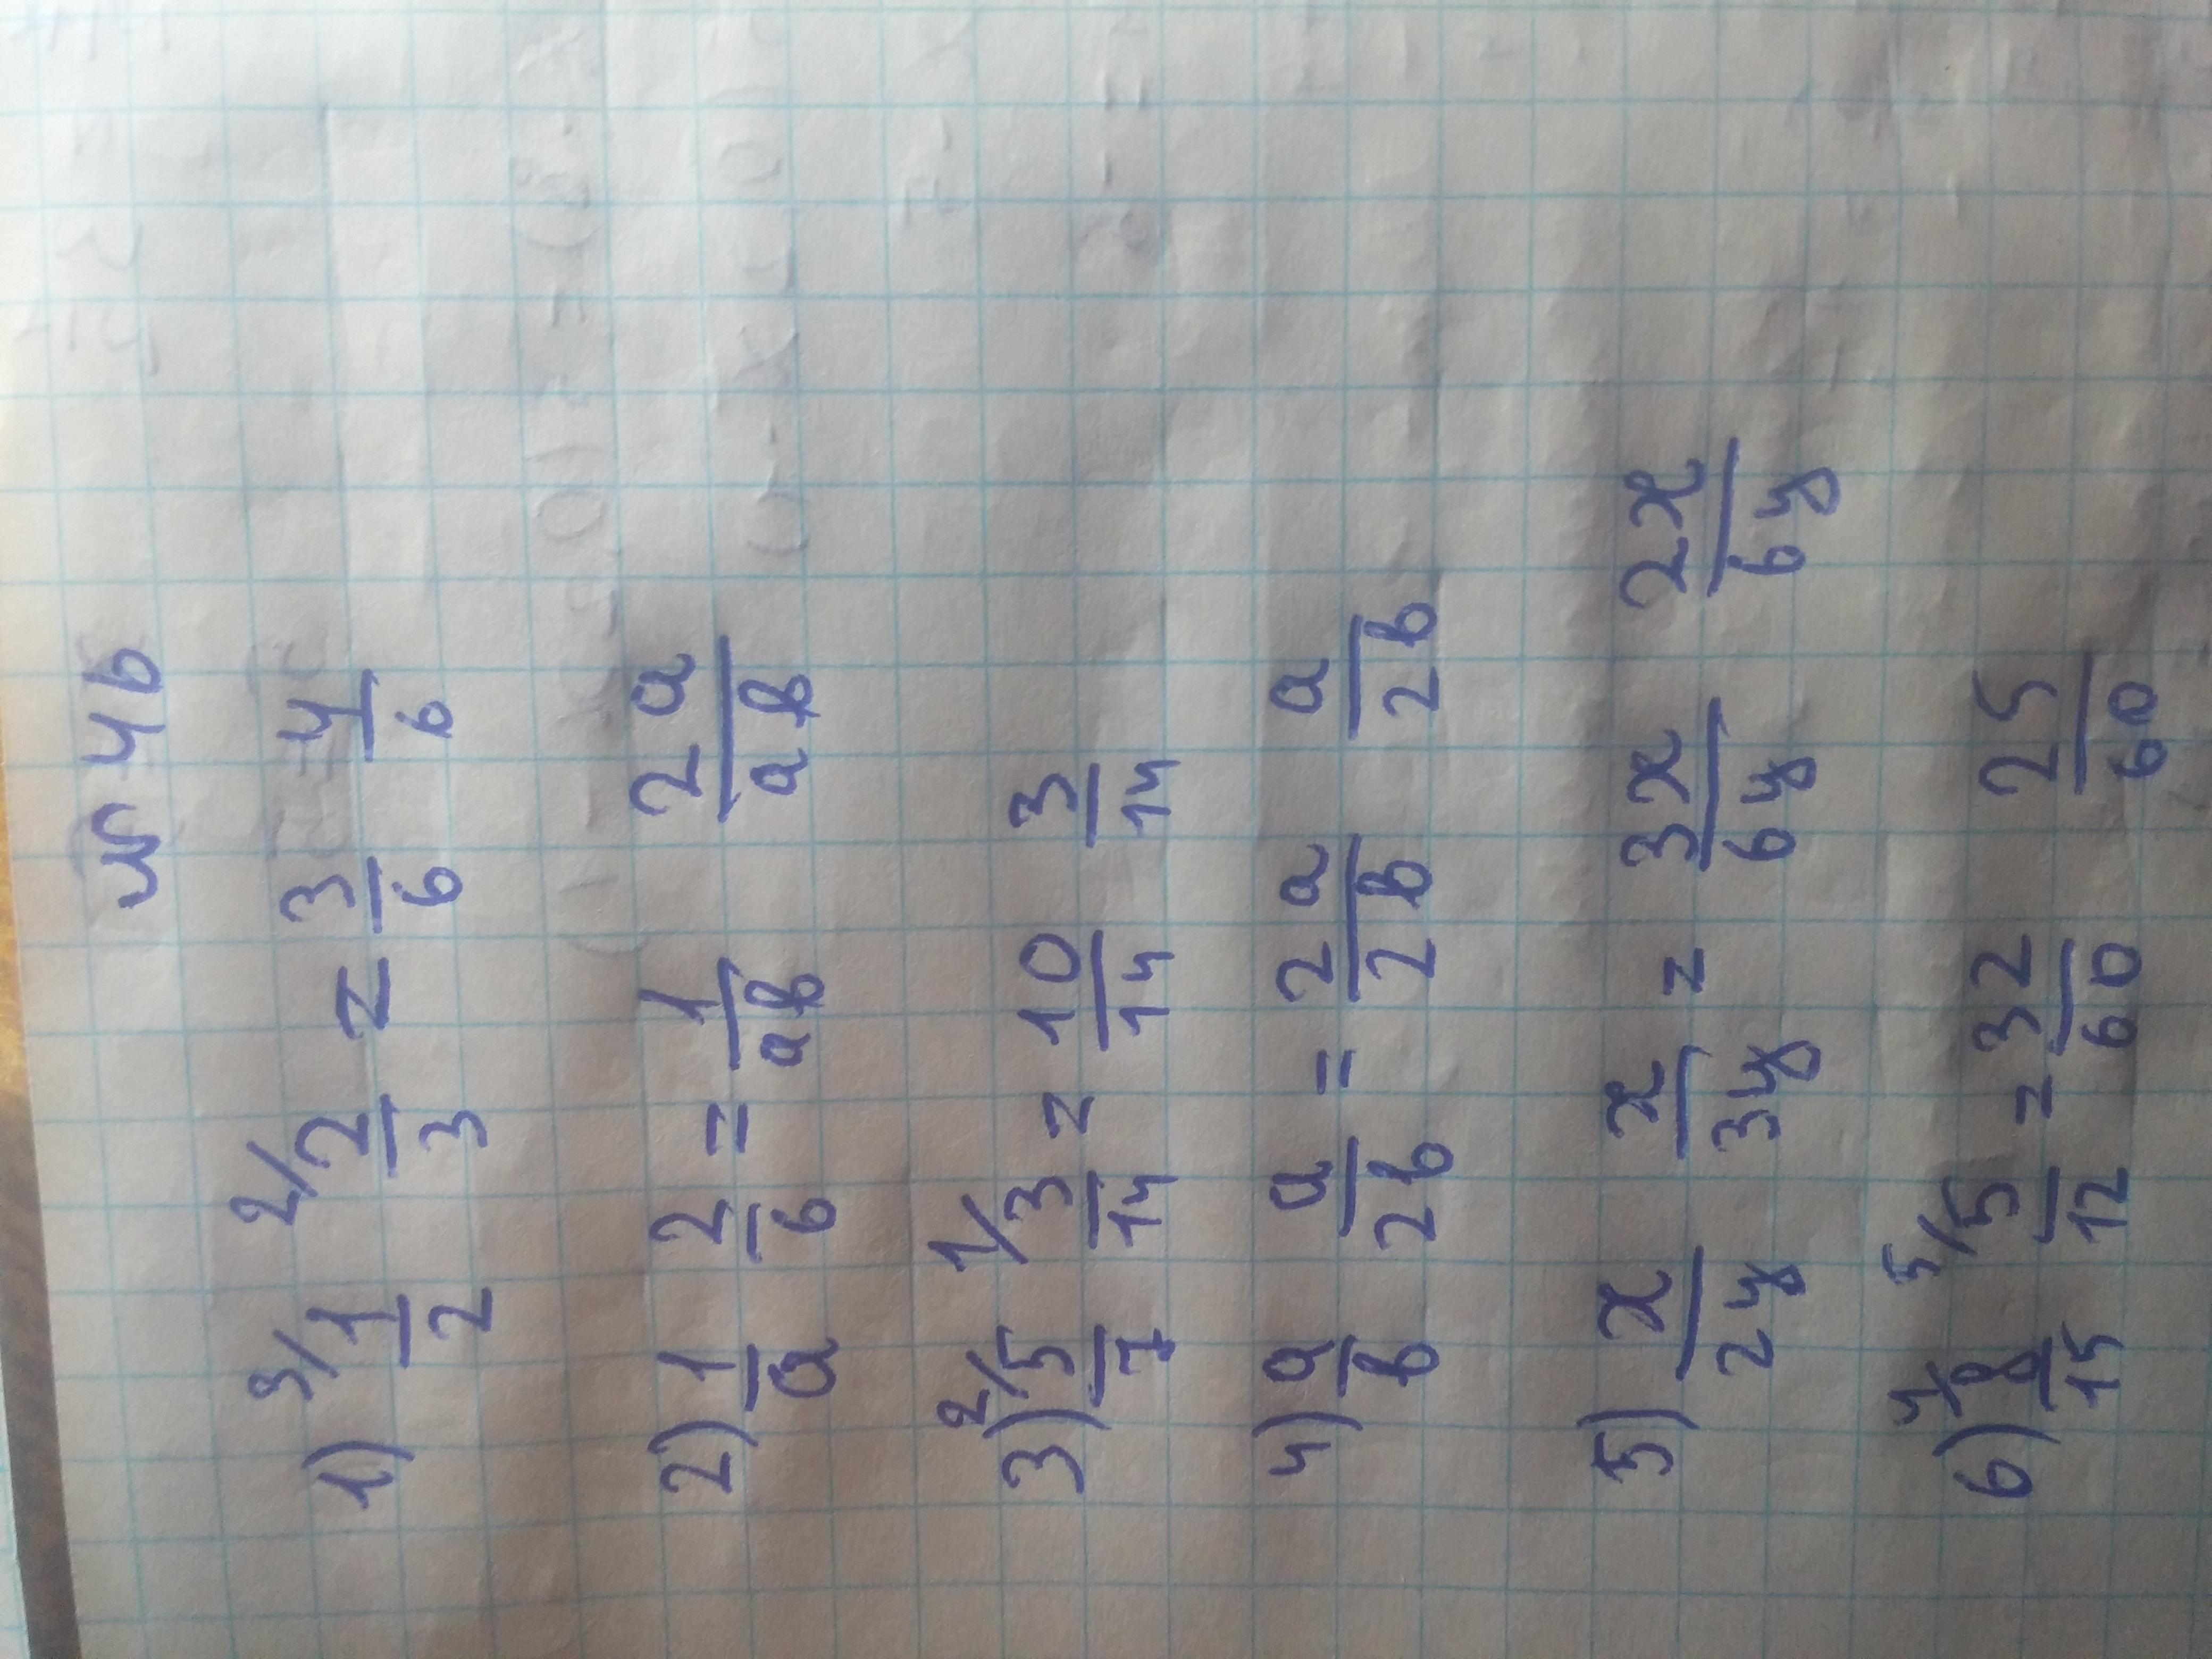 № 46
1) 3/ 1/2 2/ 2/3 = 3/6 4/6
2) 1/a 2/б = 1/aв 2a/aв
3) 2/ 5/7 1/ 3/14 = 10/14 3/14
4) a/в a/2в = 2a/2в a/2в
5) x/2y x/3y = 3x/6y 2x/6y
6) 4/ 8/15 5/ 5/12 = 32/60 25/60